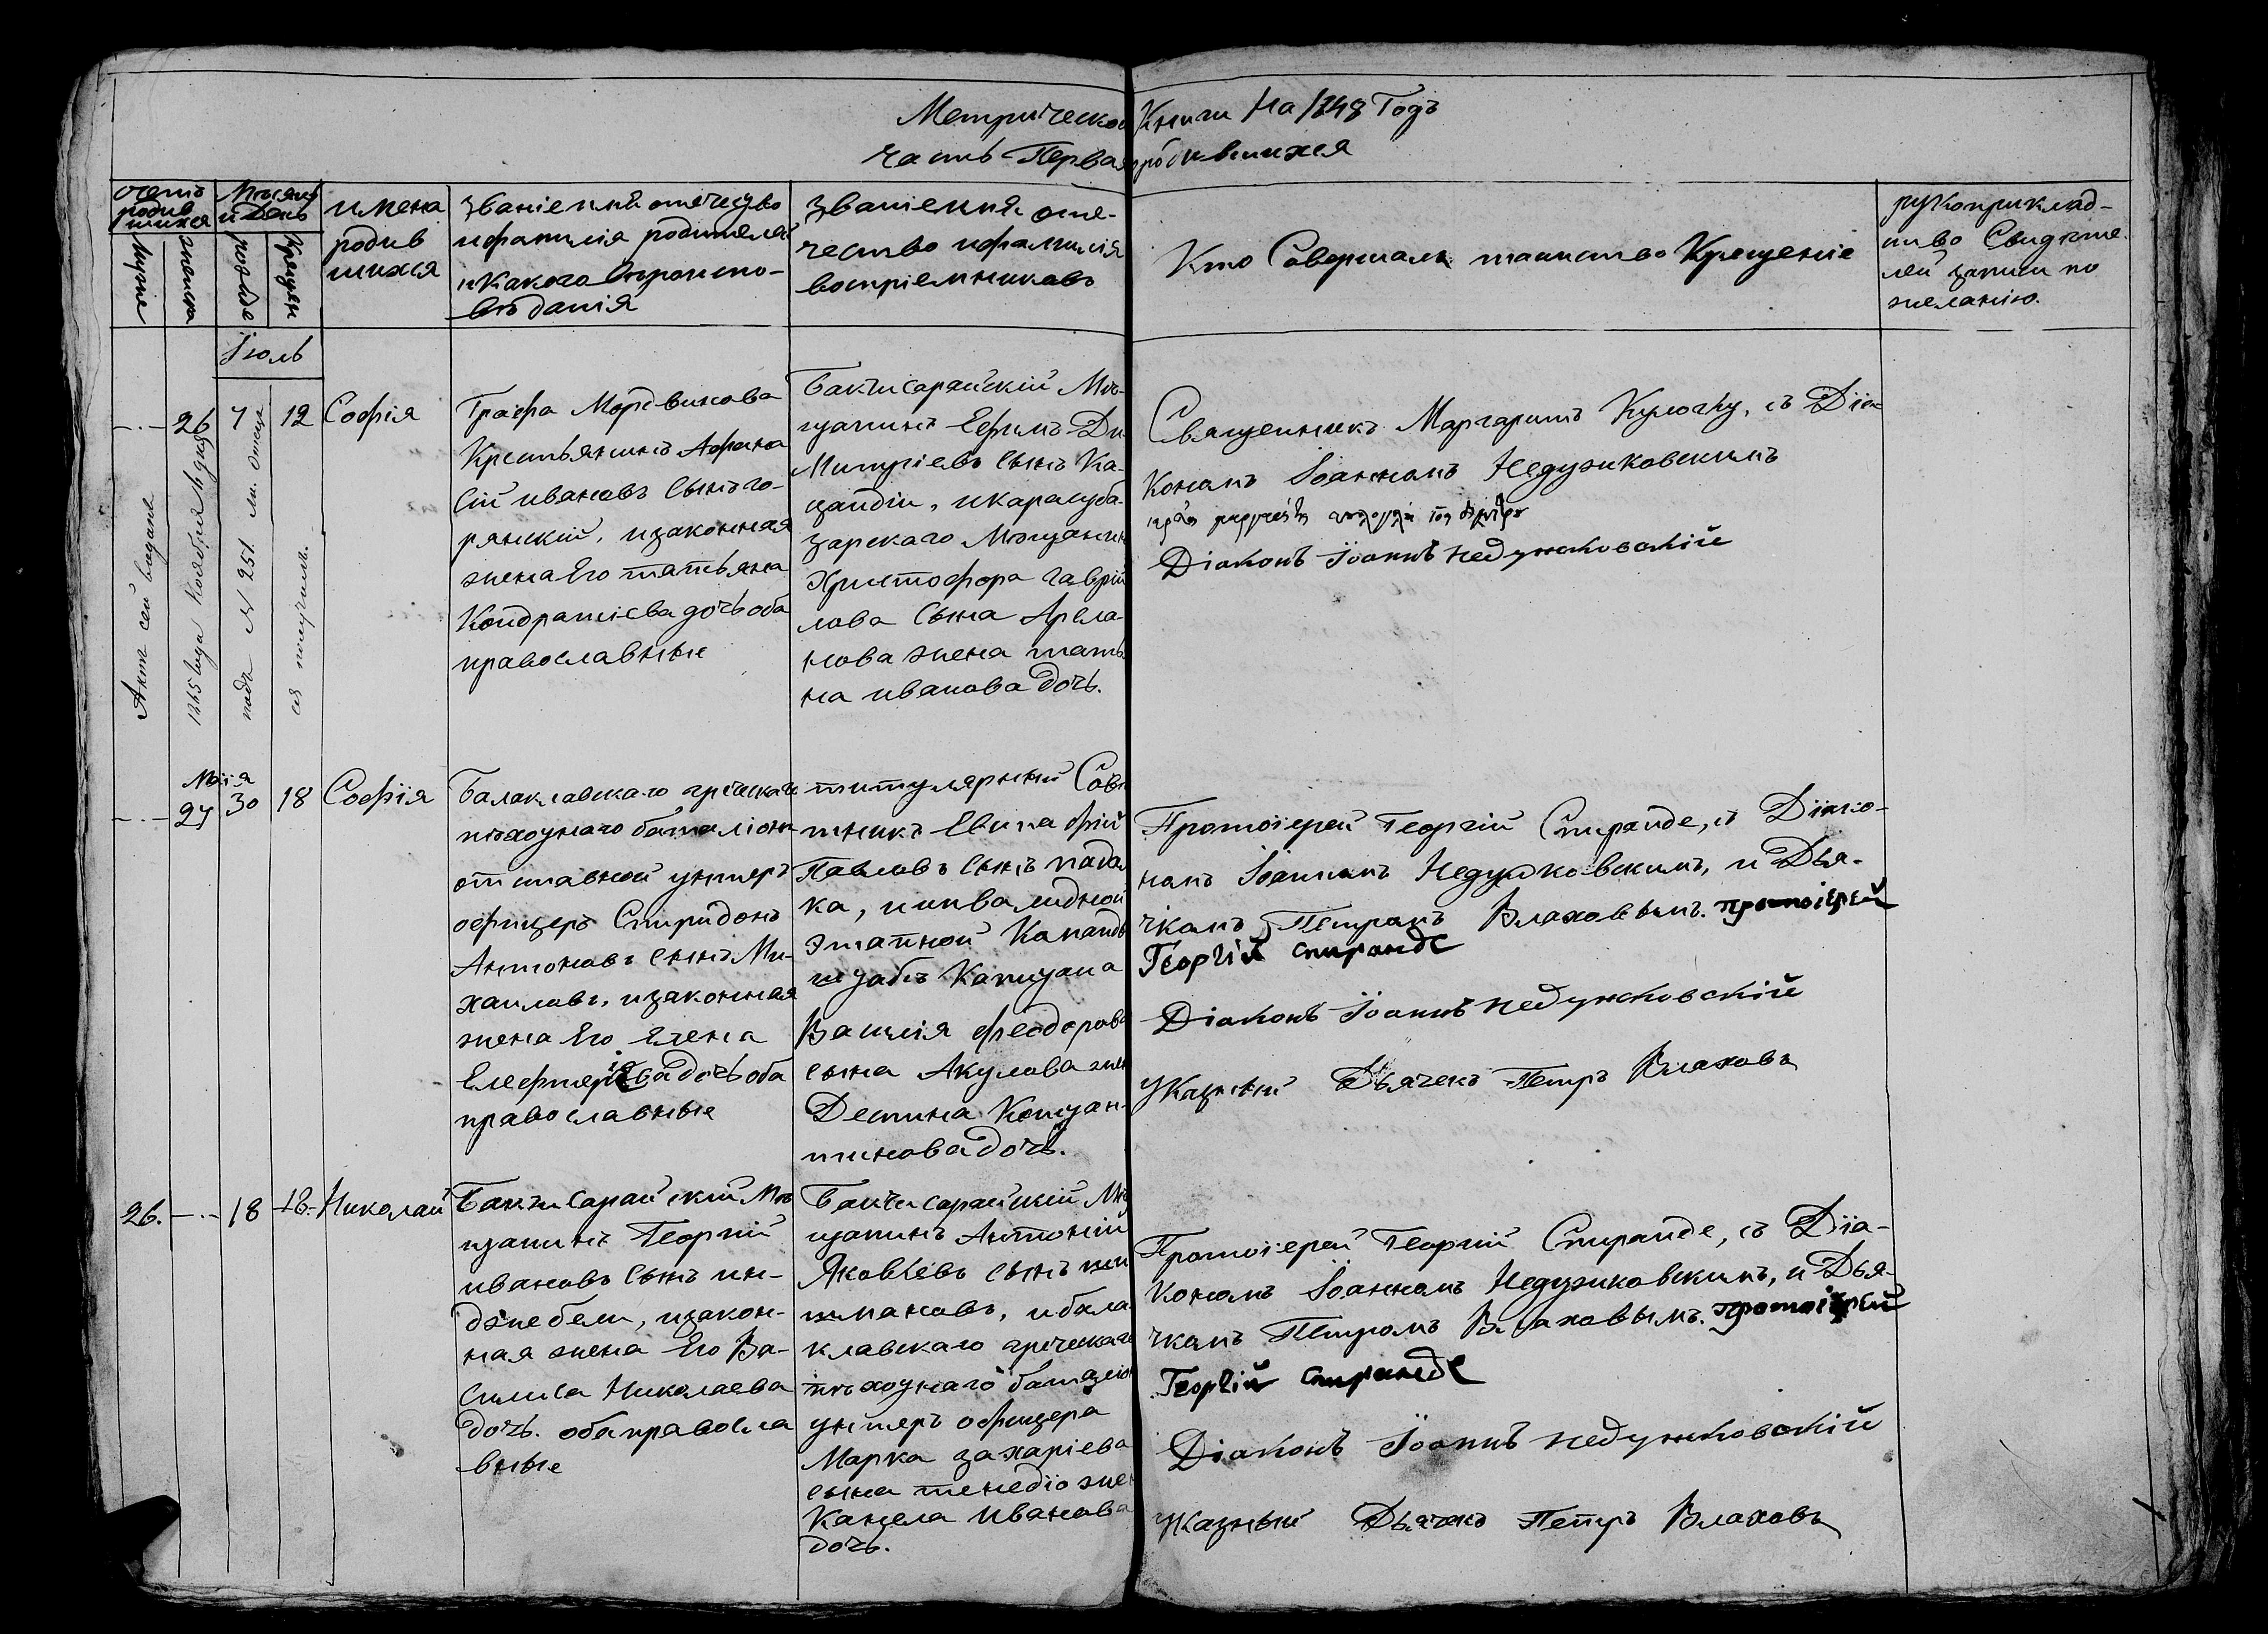 Метрической Книги На 1848 Годъ
Часть Первая родившихся
счетъ родившихся
Мѣсяцъ и День
имена родив шихся
званіе имя отечество
и фамилія родителей
и какого вѣроиспо-
вѣданія
званіе имя оте-
чество и фамилія
воспріемниковъ
Кто Совершалъ таинство Крещеніе
рукоприклад-
ство Свидѣте-
лей записи по
желанію.
Мужие
женска
рожде
Крещен
Іюль
26 7 12 Софія
Графа Мордвинова
Крестьянинъ Афана
сій ивановъ сынъ го-
рянскій, изаконная
жена Его татьяна
Кондратіева дочь оба
православные
Бакчисарайскій Мѣ-
щанинъ Ефимъ Ди
Митріевъ сынъ Ка-
, икарасуба-
зарскаго Мѣщанин
Христофора гаврій
лова сына Арсла-
нова жена тать
на иванова дочь.
Священникъ Маргаритъ , съ Діа-
Кономъ Іоанномъ Недужковскимъ
Діаконъ Іоаннъ недужковскій
Актъ сей выданъ
1865 года Ноября 4 дня
подъ № 251.
ся получилъ.
Маія
27 30 18 Софія
Балаклавскаго греческаго
пѣхотнаго баталіона
отставной унтеръ
офицеръ Спиридонъ
Антоновъ сынъ Ми-
хаиловъ, изаконная
жена Его Елена
Елефтеріева дочь оба
православные
титулярный Совѣ
тникъ Евстафій
Павловъ сынъ
ка, иинвалидной
этапной Команды
штабъ Капитана
Василія феодорова
сына Акулова жен
Деспина Констан-
тинова дочь.
Протоіерей Георгій Спиранде, съ Діако-
номъ Іоанномъ Недужковскимъ, и Дья-
чкомъ Петромъ Влаховымъ. протоіерей
Георгій спиранде
Діаконъ Іоаннъ недужковскій
Указный Дьячекъ Петръ Влаховъ
26. 18 18 Николай
Бакчисарайскій Мѣ
щанинъ Георгій
ивановъ сынъ ин-
джебели, изакон-
ная жена Его Ва-
силиса Николаева
дочь. оба правосла
вные
Бакчисарайскій Мѣ
щанинъ Антоній
Яковлевъ сынъ
, ибала
клавскаго греческаго
пѣхотнаго баталіо
унтеръ офицера
Марка захаріева
сына тенедіо жен
Канела иванова
дочь.
Протоіерей Георгій Спиранде, съ Діа-
кономъ Іоанномъ Недужковскимъ, и Дья-
чкомъ Петромъ Влаховымъ. протоіерей
Георгій спиранде
Діаконъ Іоаннъ недужковскій
Указный Дьячекъ Петръ Влаховъ